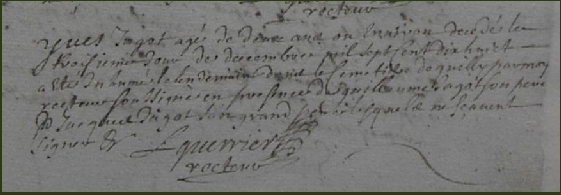 recteur
yves Jagot agé de deux ans ou Environ decedé le
troisieme Jour de decembre mil sept sent dix huict
a Eté Inhumé le lendemain dans le semetiere de par moy
recteur soussigné en presence de guillaume Jagot son pere
Jacque Jagot son grand pere lesquels ne scavent
signer &
recteur